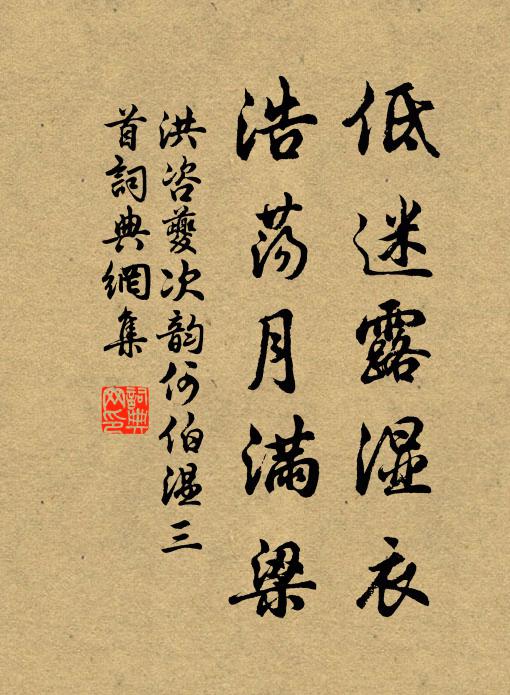 低迷露湿衣
浩荡月满梁
洪咨夔次韵何伯温三
首词典網集
詞典
网印